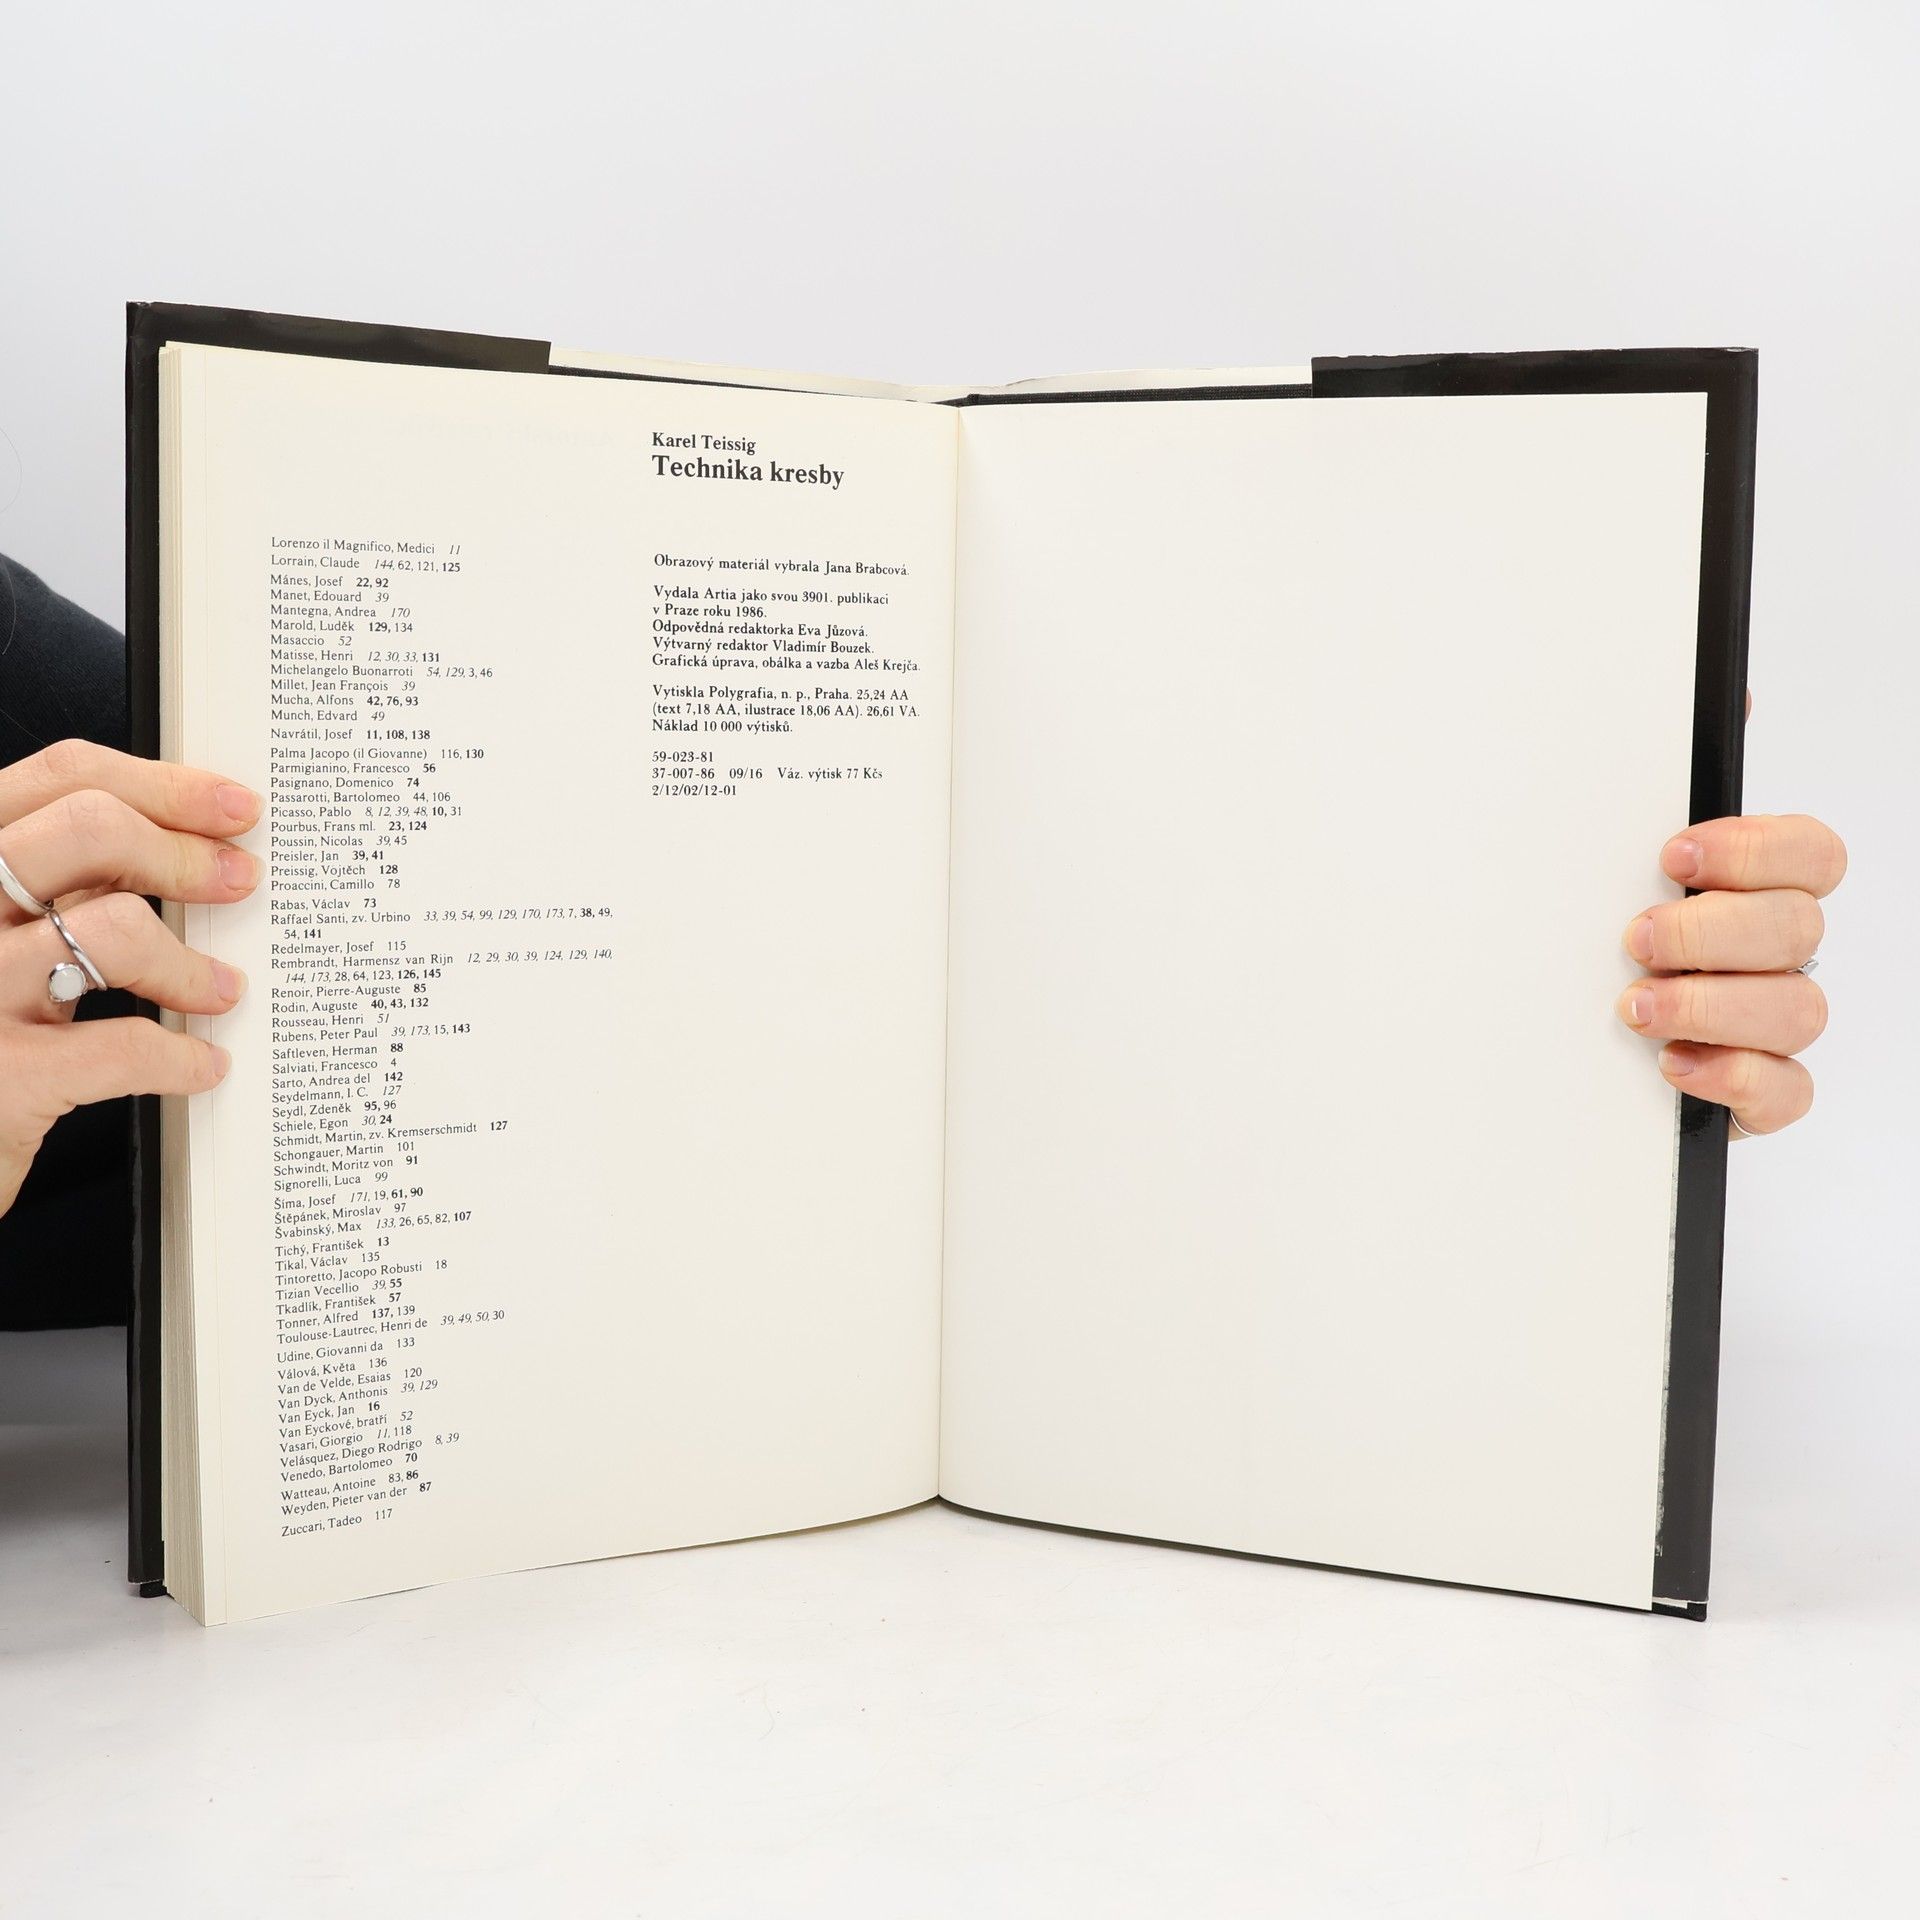 Lorenzo il Magnifico, Medici 11
Lorrain, Claude 144, 62, 121, 125
Mánes, Josef 22, 92
Manet, Edouard 39
Mantegna, Andrea 170
Marold, Luděk 129, 134
Masaccio 52
Matisse, Henri 12, 30, 33, 131
Michelangelo Buonarroti 54, 129, 3, 46
Millet, Jean François 39
Mucha, Alfons 42, 76, 93
Munch, Edvard 49
Navrátil, Josef 11, 108, 138
Palma Jacopo (il Giovanne) 116, 130
Parmigianino, Francesco 56
Pasignano, Domenico 74
Passarotti, Bartolomeo 44, 106
Picasso, Pablo 8, 12, 39, 48, 10, 31
Pourbus, Frans ml. 23, 124
Poussin, Nicolas 39, 45
Preisler, Jan 39, 41
Preissig, Vojtěch 128
Proaccini, Camillo 78
Rabas, Václav 73
Raffael Santi, zv. Urbino 33, 39, 54, 99, 129, 170, 173, 7, 38, 49,
54, 141
Redelmayer, Josef 115
Rembrandt, Harmensz van Rijn 12, 29, 30, 39, 124, 129, 140,
144, 173, 28, 64, 123, 126, 145
Renoir, Pierre-Auguste 85
Rodin, Auguste 40, 43, 132
Rousseau, Henri 51
Rubens, Peter Paul 39, 173, 15, 143
Saftleven, Herman 88
Salviati, Francesco 4
Sarto, Andrea del 142
Seydelmann, I. C. 127
Seydl, Zdeněk 95, 96
Schiele, Egon 30, 24
Schmidt, Martin, zv. Kremserschmidt 127
Schongauer, Martin 101
Schwindt, Moritz von 91
Signorelli, Luca 99
Šíma, Josef 171, 19, 61, 90
Štěpánek, Miroslav 97
Švabinský, Max 133, 26, 65, 82, 107
Tichý, František 13
Tikal, Václav 135
Tintoretto, Jacopo Robusti 18
Tizian Vecellio 39, 55
Tkadlík, František 57
Tonner, Alfred 137, 139
Toulouse-Lautrec, Henri de 39, 49, 50, 30
Udine, Giovanni da 133
Válová, Květa 136
Van de Velde, Esaias 120
Van Dyck, Anthonis 39, 129
Van Eyck, Jan 16
Van Eyckové, bratří 52
Vasari, Giorgio 11, 118
Velásquez, Diego Rodrigo 8, 39
Venedo, Bartolomeo 70
Watteau, Antoine 83, 86
Weyden, Pieter van der 87
Zuccari, Tadeo 117
Karel Teissig
Technika kresby
Obrazový materiál vybrala Jana Brabcová.
Vydala Artia jako svou 3901. publikaci
v Praze roku 1986.
Odpovědná redaktorka Eva Jůzová.
Výtvarný redaktor Vladimír Bouzek.
Grafická úprava, obálka a vazba Aleš Krejča.
Vytiskla Polygrafia, n. p., Praha. 25,24 AA
(text 7,18 AA, ilustrace 18,06 AA). 26,61 VA.
Náklad 10 000 výtisků.
59-023-81
37-007-86 09/16 Váz. výtisk 77 Kčs
2/12/02/12-01